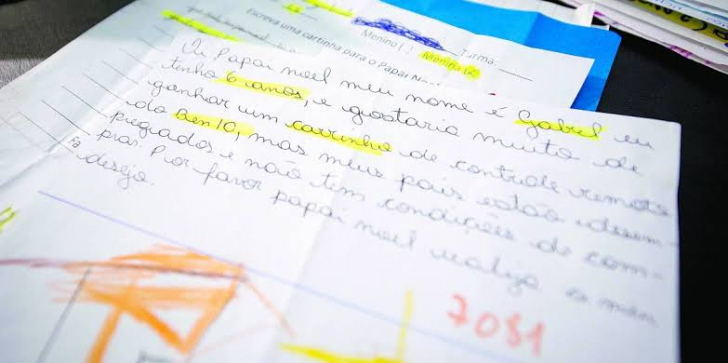 Escreva uma cartinha para o Papai N
Menino ( ) Menina (
Turma:
Oi Papai noel meu nome é Gabriel eu
tenho 6 anos, e gostaria muito de
ganhar um carrinho de controle remoto
do Ben 10, mas meus pais estão desem-
pregados e não tem condições de com-
prar. Por favor papai noel realize es meu
desejo.
7081